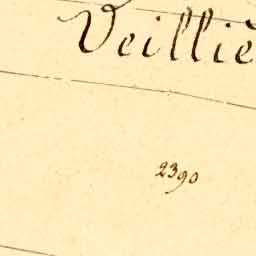 Veilliè
2390